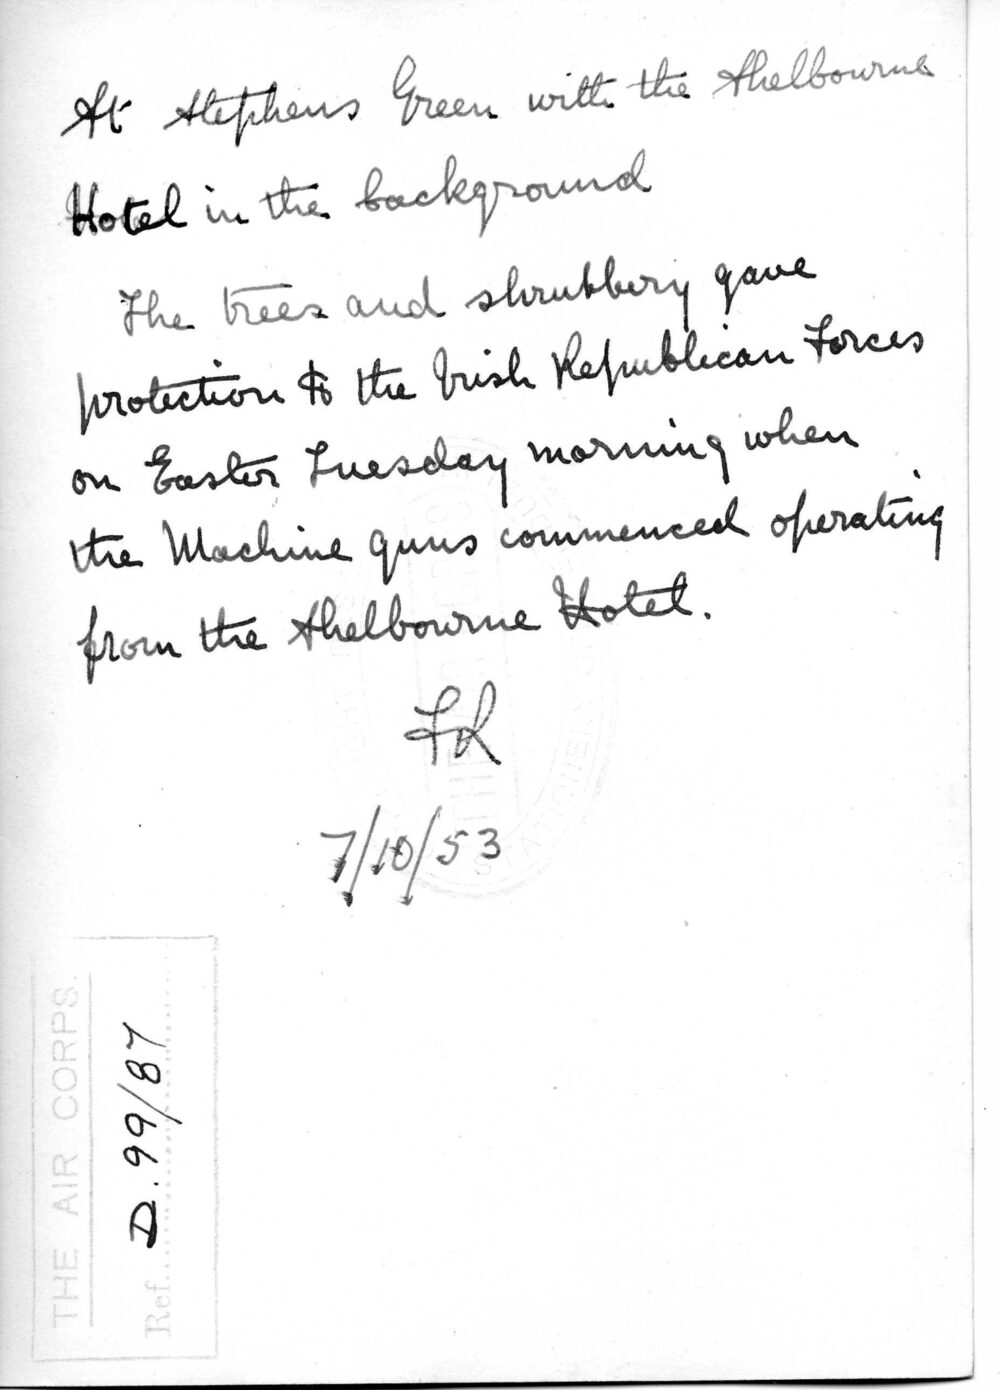 At Stephens Green with the Shelbourne
Hotel in the background
The trees and shrubbery gave
protection to the Irish Republican Forces
on Easter Tuesday morning when
the Machine guns commenced operating
from the Shelbourne Hotel.
FR
7/10/53
THE AIR CORPS.
Ref. D. 99/87